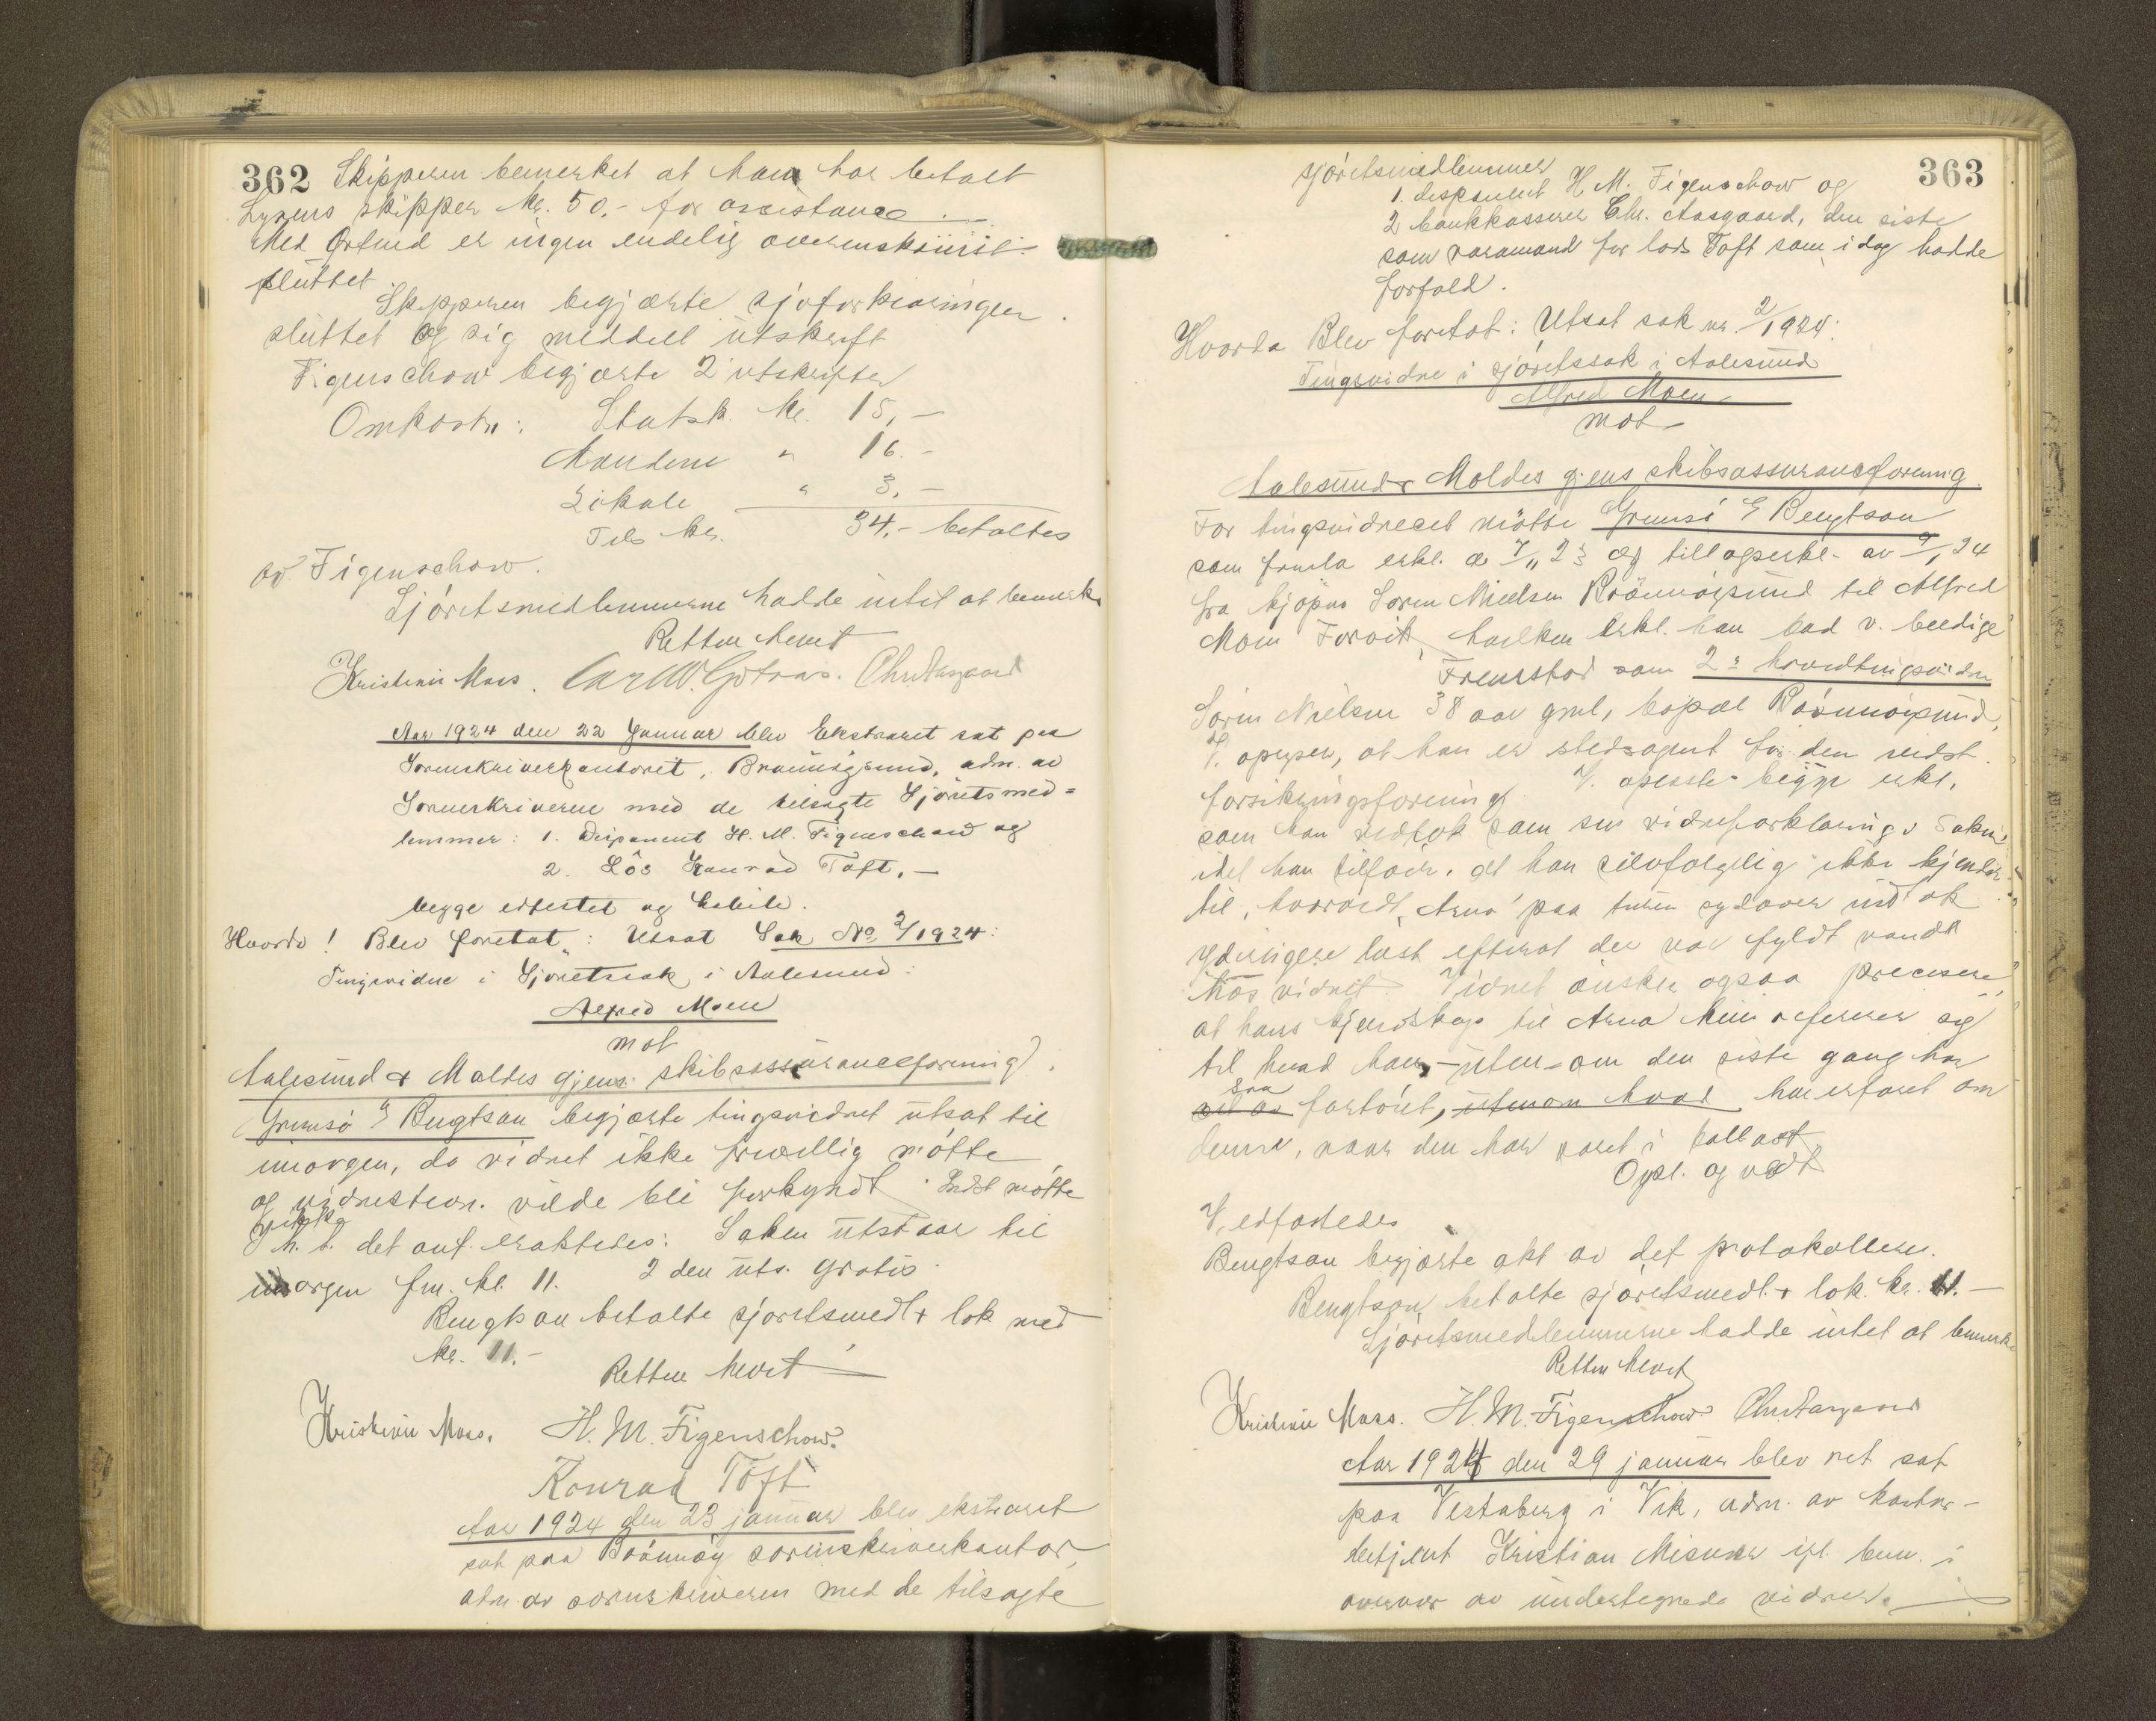 362 Skipperen bemerket at han har betalt
Lyngs skipper kr. 50.- for assistance.
Med Ørfind er ingen endelig overenskomst
sluttet
Skipperen begjærte sjøforklaringen
sluttet og sig meddelt utskrift
Figenschow begjærte 2 utskrifter
Omkostn: Statsk. kr. 15,-
Mændene " 16.-
Lokale " 3,-
Tils kr. 34,- betaltes
av Figenschow.
Sjøretsmedlemmerne hadde intet at bemerke
Retten hevet
Kristian Moes. Carl W. Chr Aasgaard
Aar 1924 den 22 Januar blev Ekstraret sat paa
Sorenskriverkontoret, Brønnøysund, adm. av
Sorenskriveren med de tilsagte Sjøretsmed=
lemmer: 1. Disponent H. M. Figenschow og
2. Lods Konrad Toft,-
begge edfestet og habile.
Hvorda! Blev foretat: Utsat Sak No 2/1924:
Tingsvidne i Sjøretssak i Aalesund:
Alfred Moen
mot
Aalesund & Moldes gjens. skibsassuranceforening.
Grimsø & Bengtson begjærte tingsvidnet utsat til
imorgen, da vidnet ikke frivillig møtte
og vidnestevn. vilde bli forkyndt. Indst møtte
ikke
I h. t. det anf. eraktedes: Saken utstaar til
imorgen frm. kl. 11. 2 den uts. gratis.
Bengtson betalte sjøretsmedl + lok med
kr. 11.-
Retten hevet
Kristian Moes. H. M. Figenschow.
Konrad Toft
Aar 1924 den 23 januar blev ekstraret
sat paa Brønnøy sorenskriverkontor,
adm. av sorenskriveren med de tilsagte
363
sjøretsmedlemmer
1. disponent H. M. Figenschow og
2 bankkasserer Chr. Aasgaard, den siste
som varamand for lods Toft som idag hadde
forfald.
Hvorda Blev foretat: Utsat sak nr. 2/1924:
Tingsvidne i sjøretssak i Aalesund
Alfred Moen
mot
Aalesund & Moldes gjens skibsassuranceforening.
For tingsvidnet møtte Grimsø & Bengtson
som fremla erkl. av 7/11 23 og tillægserkl. av 9/1 24
fra kjøpm Søren Nielsen Brönnöysund til Alfred
Moen Forvik, hvilken erkl. han bad v. beedige
Fremstod som 2. hovedtingsvidne
Søren Nielsen 38 aar gml, bopæl Brönnöysund,
V. opgyer, at han er stedsagent for den indst.
forsikringsforening. V. oplæste begge erkl.
som han vedtok som sin vidneforklaring i Saken,
idet han tilføier, at han selvfølgelig ikke kjender
til, hvorvidt "Arna" paa turen sydover indtok
yderligere last efterat der var fyldt vand
hos vidnet. Vidnet ønsker ogsaa precisere,
at hans kjendskap til Arna kun refererer sig
til hvad han - uten-om den siste gang har
saa
set av fartøiet, utenom hvad har erfaret om
denne, naar den har været i ballast.
Opl. og vedt
V. edfæstedes
Bengtson begjærte akt av det protokollerte.
Bengtson betalte sjøretsmedl. + lok. kr. 11.-
Sjøretsmedlemmerne hadde intet at bemerke
Retten hevet
Kristian Moes. H. M. Figenschow Chr Aasgaard
Aar 1924 den 29 januar blev ret sat
paa Vestaberg i Vik, adm. av kontor-
betjent Kristian Misvær ifl. bem. i
overvær av undertegnede vidner.